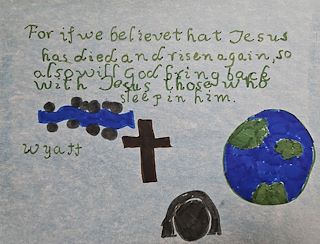 For if we believe that Jesus
has died and risen again, so
also will God bring back
with Jesus those who
sleep in him.
Wyatt